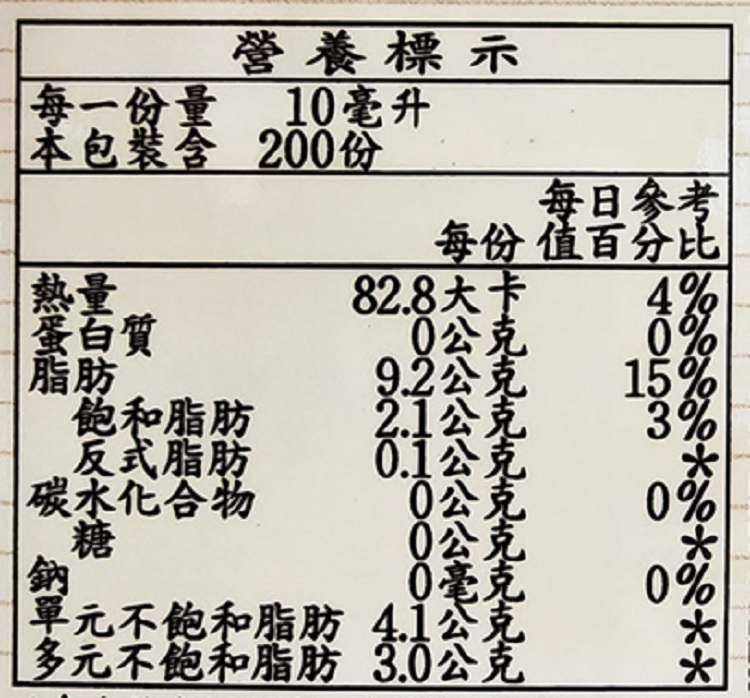 營養標示
每一份量 10毫升
本包裝含 200份
每日參考
每份 值百分比
熱量 82.8大卡 4%
蛋白質 0公克 0%
脂肪 9.2公克 15%
飽和脂肪 2.1公克 3%
反式脂肪 0.1公克 *
碳水化合物 0公克 0%
糖 0公克 *
鈉 0毫克 0%
單元不飽和脂肪 4.1公克 *
多元不飽和脂肪 3.0公克 *